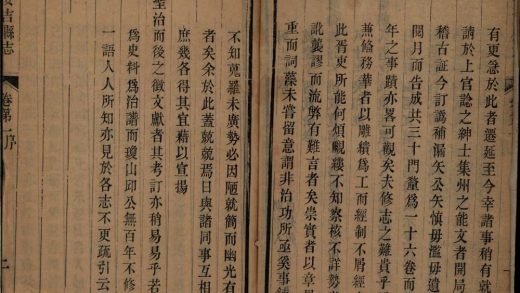 有更急於此者遷延至今幸諸事稍有就
請於上官諗之紳士集州之能文者開局
稽古証今訂譌補漏矢公矢慎毋濫毋遺
閱月而告成共三十門釐爲一十六卷而
年之事蹟亦畧可觀矣夫修志之難貴乎
兼餙務華者以雕繢爲工而經制不屑經
此胥吏所能何煩覼縷不知察核不詳勢
訛襲謬而流弊有難言者矣崇實者以章
重而詞藻未嘗留意謂非治功所亟奚事
不知蒐羅未廣勢必因陋就簡而幽光有
者矣余於此蓋兢兢焉日與諸同事互相
庶幾各得其宜藉以宣揚
至治而後之徵文獻者其考訂亦稍易易乎若
爲史料爲治譜而瓊山邱公無百年不修
一語人人所知亦見於各志不更疏引云
吉縣志
卷第一序
二